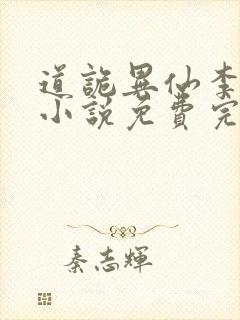 道詭異仙李
小說免費完
秦志輝